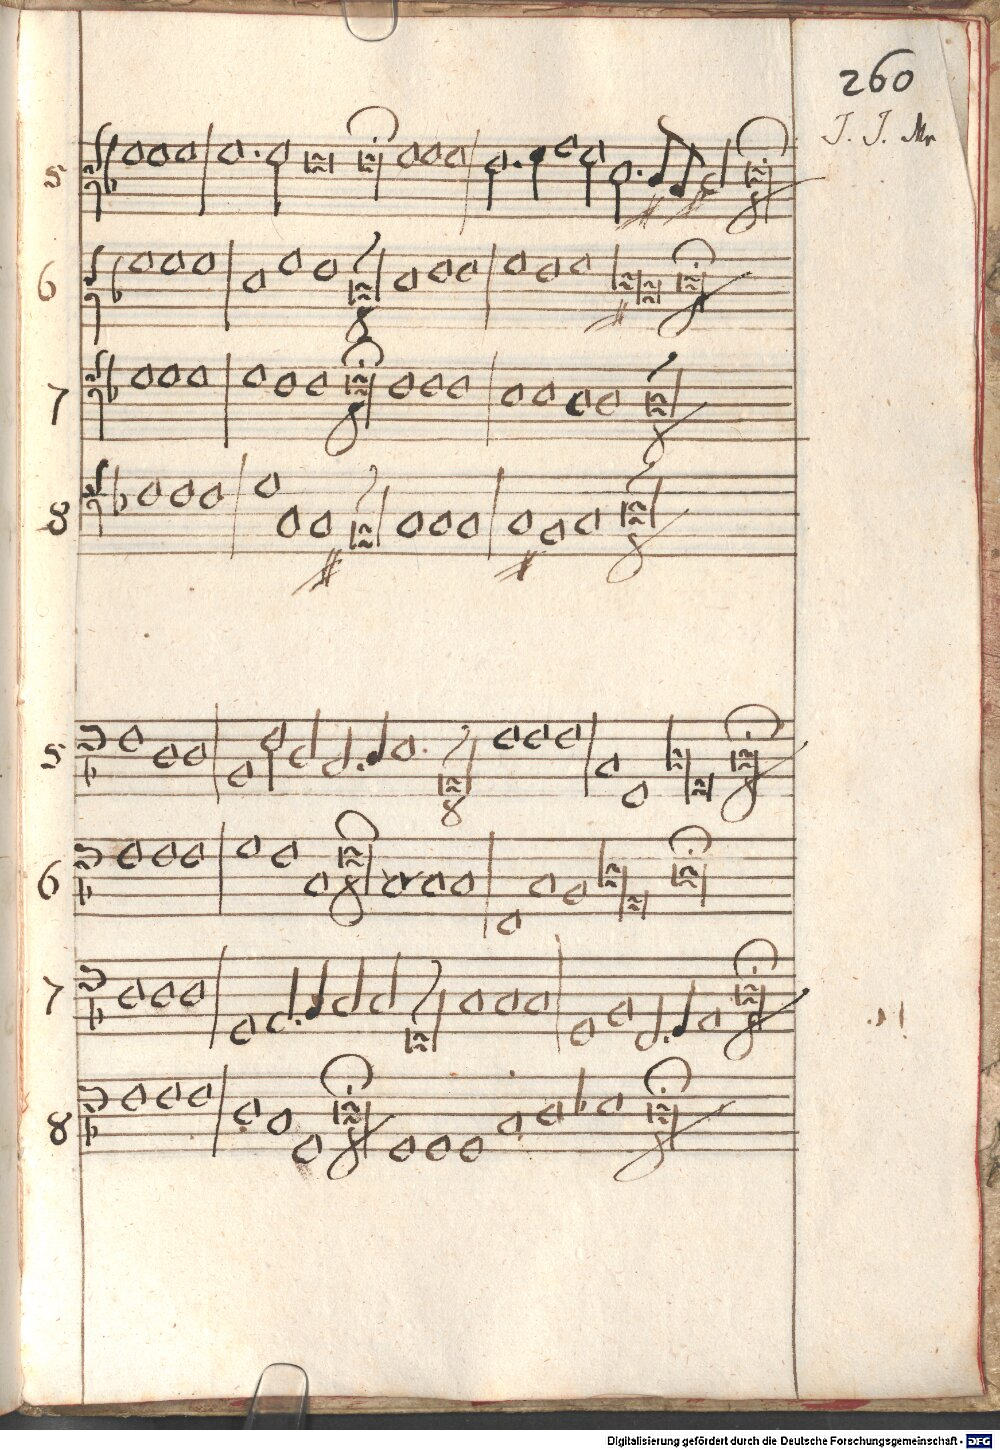 260
J. J. Mr
5
6
7
8
5
6
7
8
Digitalisierung gefördert durch die Deutsche Forschungsgemeinschaft - DFG